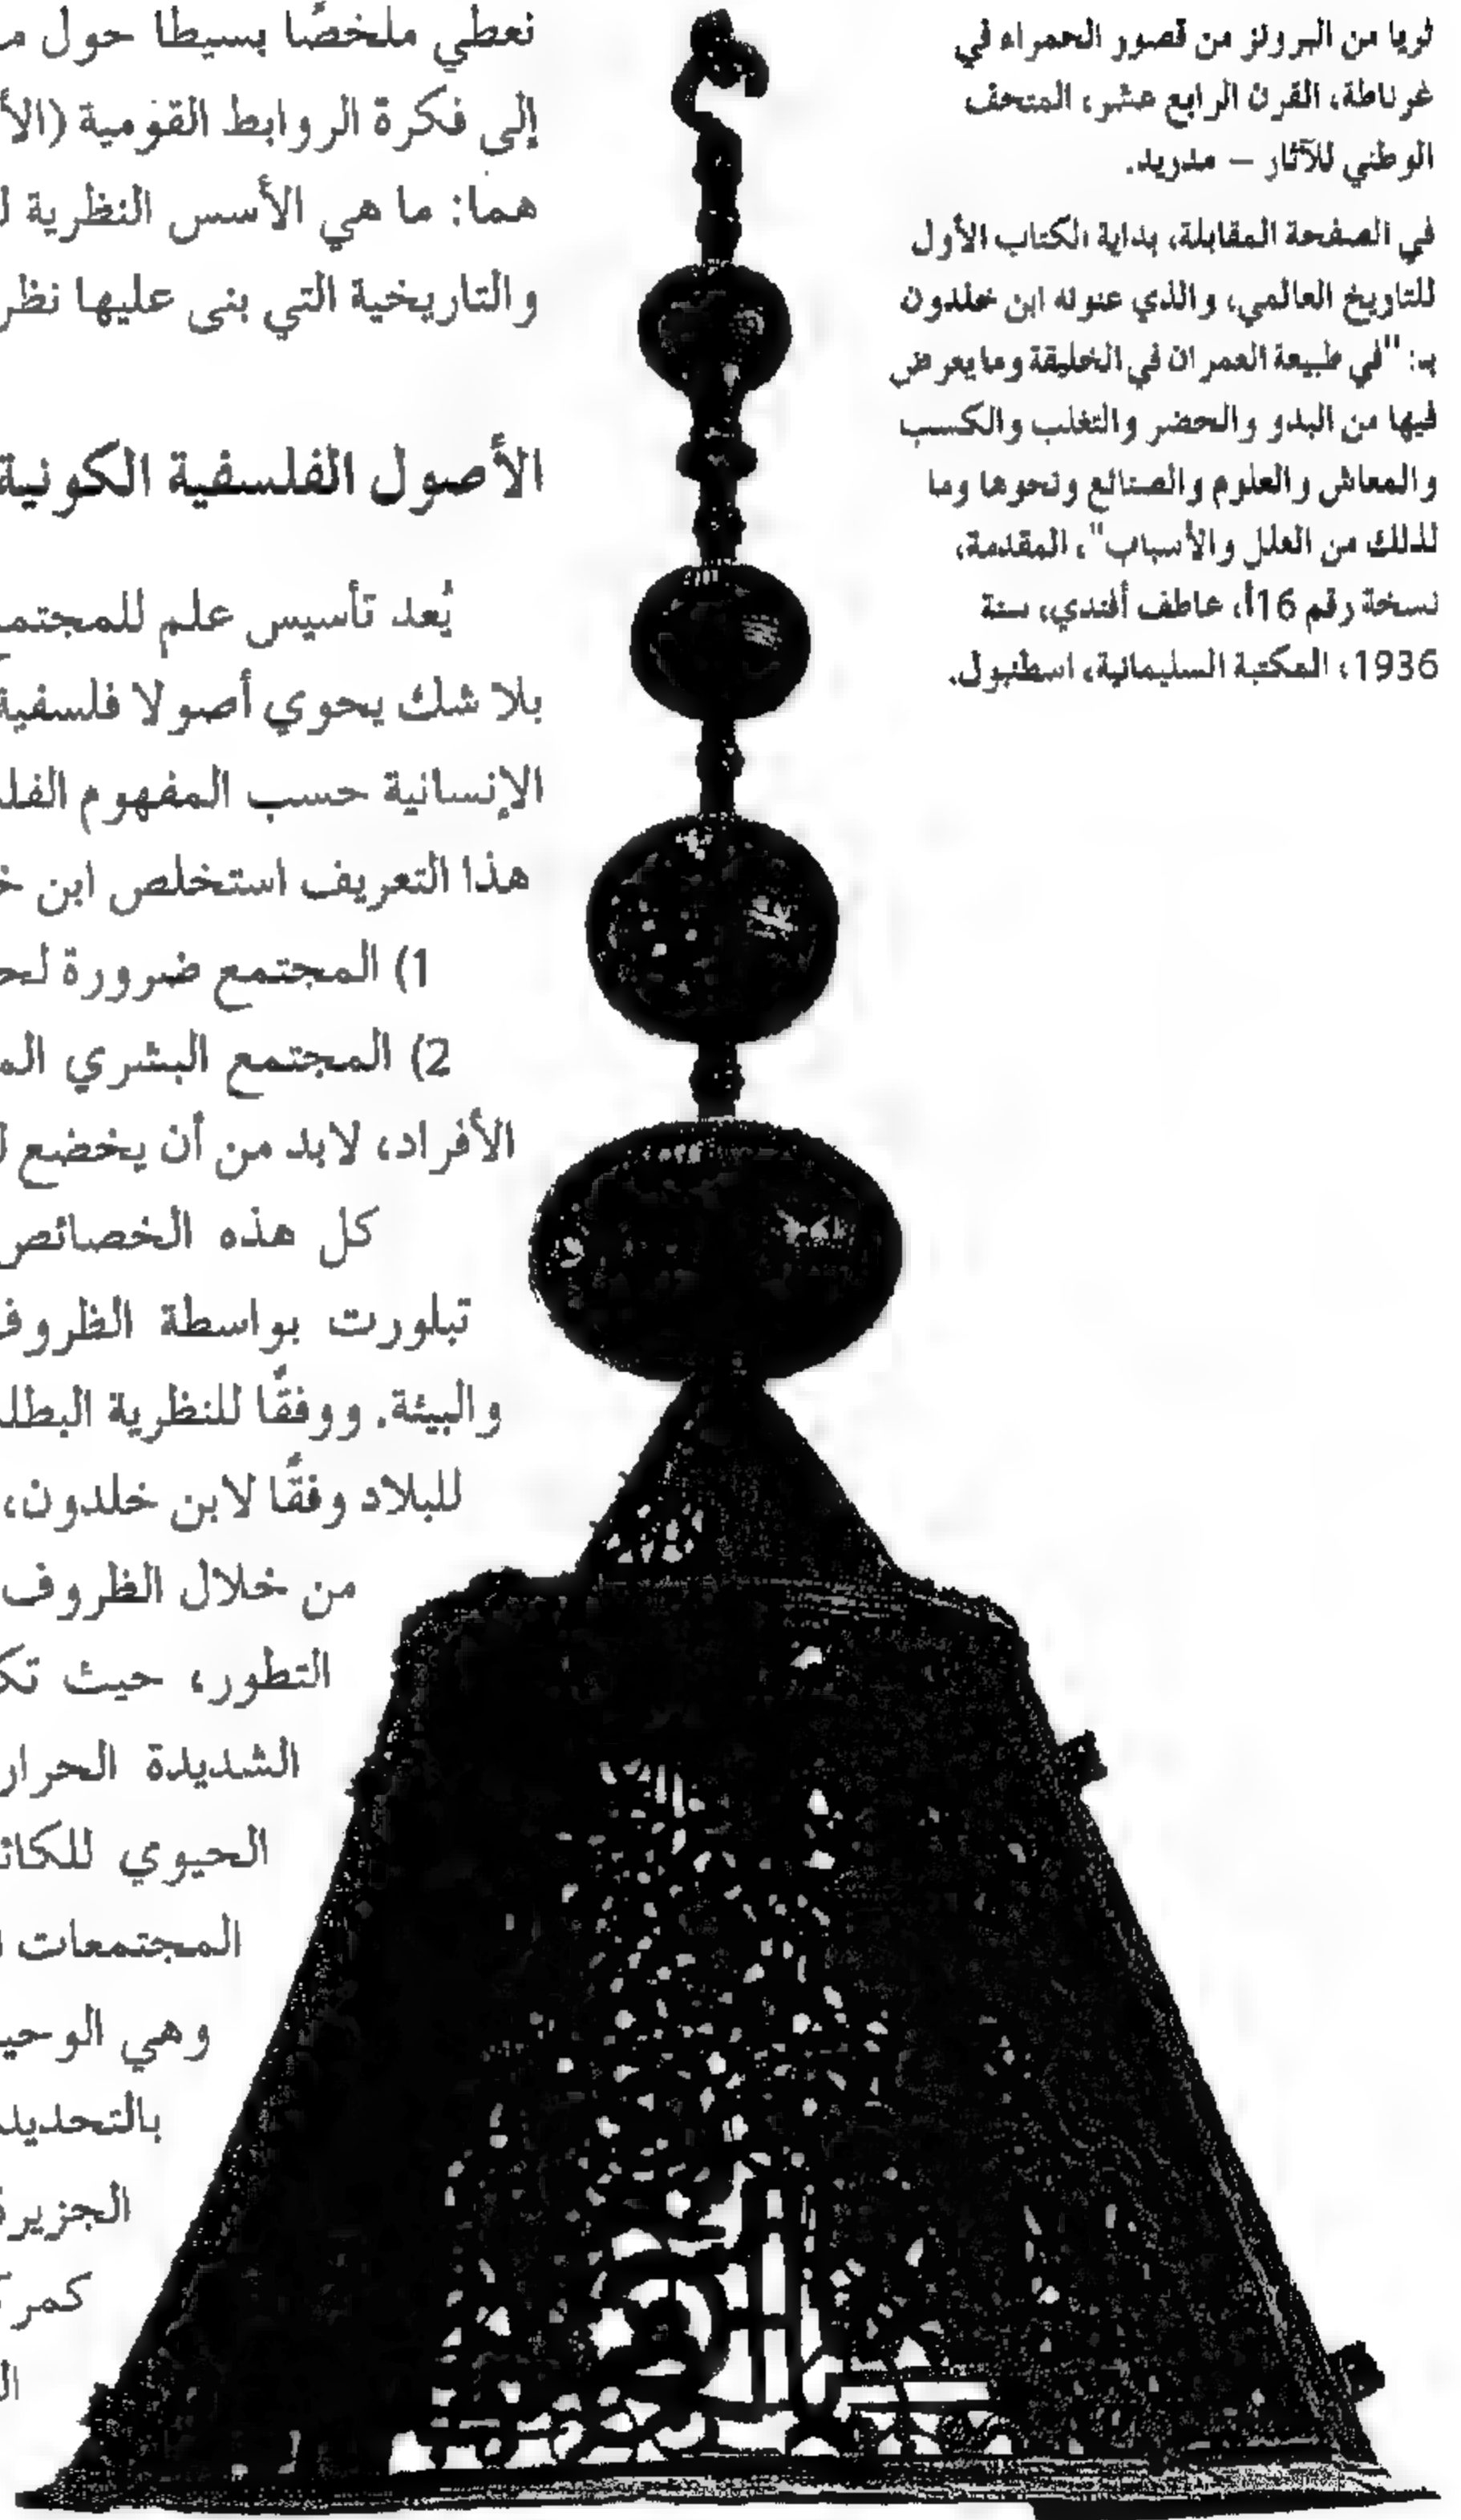 ثريا من البرونز من قصور الحمراء في
غرناطة، القرن الرابع عشر، المتحف
الوطني للآثار – مدريد.
في الصفحة المقابلة، بداية الكتاب الأول
للتاريخ العالمي، والذي عنونه ابن خلدون
بـ: "في طبيعة العمران في الخليقة وما يعرض
فيها من البدو والحضر والتغلب والكسب
والمعاش والعلوم والصنائع ونحوها وما
لذلك من العلل والأسباب"، المقدمة،
نسخة رقم 16أ، عاطف أفندي، سنة
1936، المكتبة السليمانية، اسطنبول.
نعطي ملخصًا بسيطا حول
إلى فكرة الروابط القومية
هما: ما هي الأسس النظرية
والتاريخية التي بنى عليها
الأصول الفلسفية الكونية
يُعد تأسيس علم
بلا شك يحوي أصولا فلسفية
الإنسانية حسب المفهوم
هذا التعريف استخلص ابن
1) المجتمع ضرورة
2) المجتمع البشري
الأفراد، لابد من أن يخضع
كل هذه الخصائص
تبلورت بواسطة
والبيئة. ووفقًا للنظرية
للبلاد وفقًا لابن خلدون،
من خلال الظروف
التطور، حيث
الشديدة
الحيوي
المجتمعات
وهي